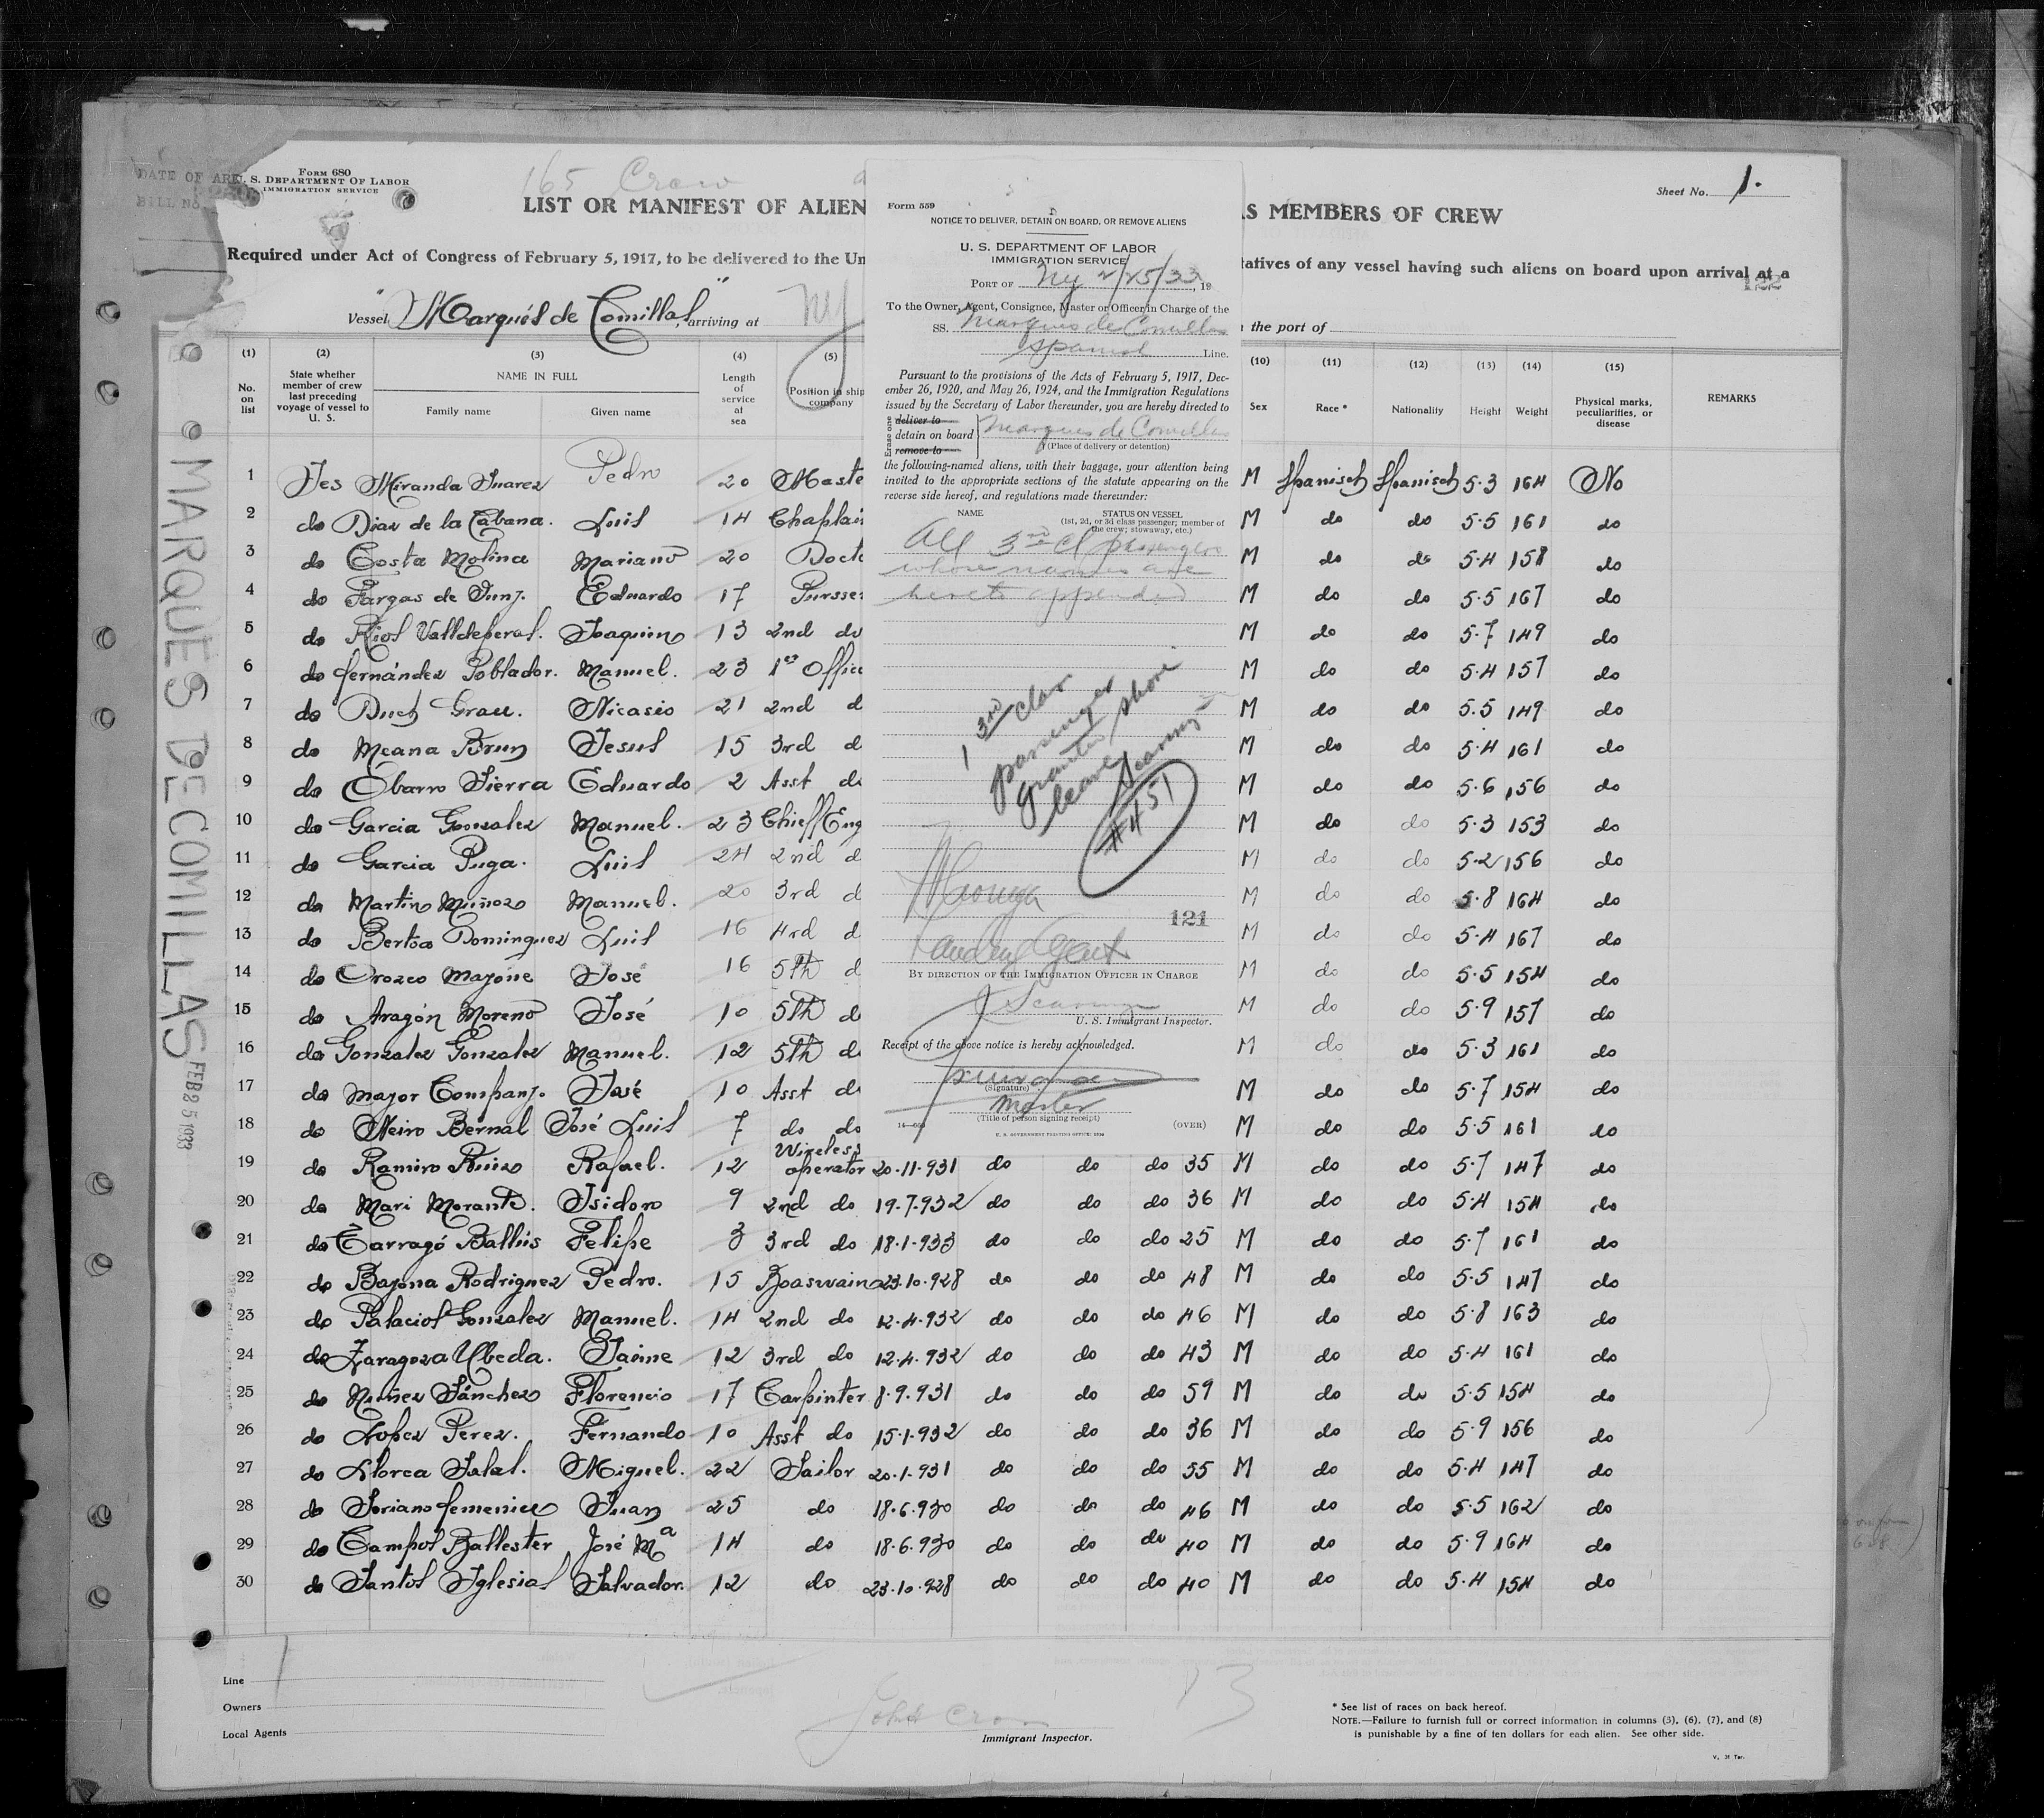 DATE OF ARR
BILL No.
Form 680
U. S. DEPARTMENT OF LABOR
IMMIGRATION SERVICE
165 Crew
Sheet No. 1.
LIST OR MANIFEST OF ALIEN
AS MEMBERS OF CREW
Required under Act of Congress of February 5, 1917, to be delivered to the Un
tatives of any vessel having such aliens on board upon arrival at a
Vessel "Marqués de Comillas", arriving at NY
the port of
MARQUES DE COMILLAS FEB 25 1933
(1) (2) (3) (4) (5)
(10) (11) (12) (13) (14) (15)
No. on list
State whether member of crew last preceding voyage of vessel to U. S.
NAME IN FULL
Family name Given name
Length of service at sea
Position in ship company
Sex Race * Nationality Height Weight
Physical marks, peculiarities, or disease
REMARKS
1 Yes Miranda Suarez Pedro 20 Maste M Spanisch Spanisch 5·3 164 No
2 do Diaz de la Cabana. Luis 14 Chaplain M do do 5·5 161 do
3 do Costa Molina Mariano 20 Docto M do do 5·4 158 do
4 do Fargas de Junj. Eduardo 17 Pursser M do do 5·5 167 do
5 do Rios Valldeperas. Joaquin 13 2nd do M do do 5·7 149 do
6 do fernández Poblador. Manuel. 23 1er Office M do do 5·4 157 do
7 do Duch Grau. Nicasio 21 2nd d M do do 5.5 149 do
8 do Meana Brun Jesus 15 3rd d M do do 5·4 161 do
9 do Obarro Sierra Eduardo 2 Asst do M do do 5·6 156 do
10 do Garcia Gonzalez Manuel. 23 Chieff Eng M do do 5·3 153 do
11 do Garcia Puga. Luis 24 2nd d M do do 5·2 156 do
12 do Martin Muñoz Manuel. 20 3rd d M do do 5·8 164 do
13 do Bertoa Dominguez Luis 16 4rd d M do do 5·4 167 do
14 do Orozco Mayone José 16 5th d M do do 5·5 154 do
15 do Aragón Moreno José 10 5th d M do do 5·9 157 do
16 do Gonzalez Gonzalez Manuel. 12 5th d M do do 5·3 161 do
17 do Mayor Companj. José 10 Asst do M do do 5·7 154 do
18 do Neiro Bernal José Luis 7 do do M do do 5·5 161 do
19 do Ramiro Ruiz Rafael. 12 Wireless operator 20·11·931 do do do 35 M do do 5·7 147 do
20 do Mari Morante. Isidoro 9 2nd do 19·7·932 do do do 36 M do do 5·4 154 do
21 do Tarragó Ballús Felipe 3 3rd do 18·1·933 do do do 25 M do do 5·7 161 do
22 do Bayona Rodriguez Pedro. 15 Boaswain 23·10·928 do do do 48 M do do 5·5 147 do
23 do Palacios Gonzalez Manuel. 14 2nd do 12·4·932 do do do 46 M do do 5·8 163 do
24 do Zaragoza Ubeda. Jaime 12 3rd do 12·4·932 do do do 43 M do do 5·4 161 do
25 do Nuñez Sánchez Florencio 17 Carpinter 8·9·931 do do do 59 M do do 5·5 154 do
26 do Lopez Perez. Fernando 10 Asst do 15·1·932 do do do 36 M do do 5·9 156 do
27 do Llorca Salas. Miguel. 22 Sailor 20·1·931 do do do 55 M do do 5·4 147 do
28 do Soriano femenia Juan 25 do 18·6·930 do do do 46 M do do 5·5 162 do
29 do Campos Ballester José Ma 14 do 18·6·930 do do do 40 M do do 5·9 164 do
30 do Santos Iglesias Salvador. 12 do 23·10·928 do do do 40 M do do 5·4 154 do
Form 559
NOTICE TO DELIVER, DETAIN ON BOARD, OR REMOVE ALIENS
U. S. DEPARTMENT OF LABOR
IMMIGRATION SERVICE
PORT OF NY 2/25/33, 19
To the Owner, Agent, Consignee, Master or Officer in Charge of the
SS. Marques de Comillas
Spanish Line.
Pursuant to the provisions of the Acts of February 5, 1917, Dec-
ember 26, 1920, and May 26, 1924, and the Immigration Regulations
issued by the Secretary of Labor thereunder, you are hereby directed to
Erase one
deliver to
detain on board Marques de Comillas
remove to (Place of delivery or detention)
the following-named aliens, with their baggage, your attention being
invited to the appropriate sections of the statute appearing on the
reverse side hereof, and regulations made thereunder:
NAME STATUS ON VESSEL
(1st, 2d, or 3d class passenger; member of
the crew; stowaway, etc.)
All 3rd cl passengers
whose names are
hereto appended
1 3rd class
passenger
granted shore
leave
#451
Landing Agent
121
BY DIRECTION OF THE IMMIGRATION OFFICER IN CHARGE
U. S. Immigrant Inspector.
Receipt of the above notice is hereby acknowledged.
(Signature)
Master
(Title of person signing receipt)
(OVER)
U. S. GOVERNMENT PRINTING OFFICE
Line
Owners
Local Agents
Immigrant Inspector.
13
* See list of races on back hereof.
NOTE.—Failure to furnish full or correct information in columns (3), (6), (7), and (8)
is punishable by a fine of ten dollars for each alien. See other side.